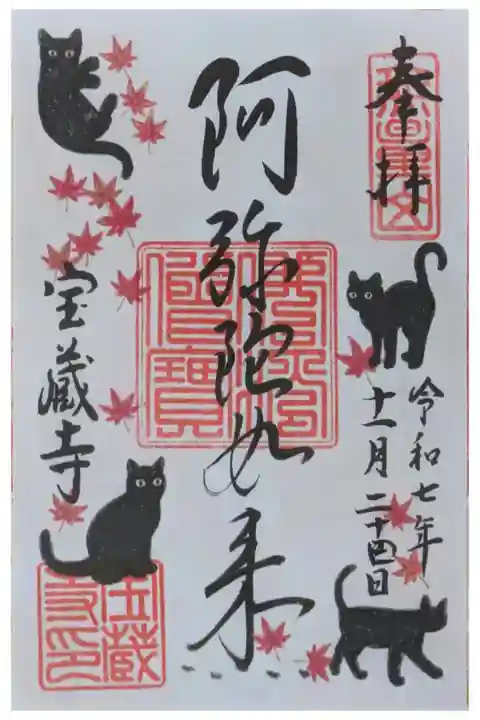 奉拝
阿弥陀如来
令和七年
十一月二十四日
宝蔵寺